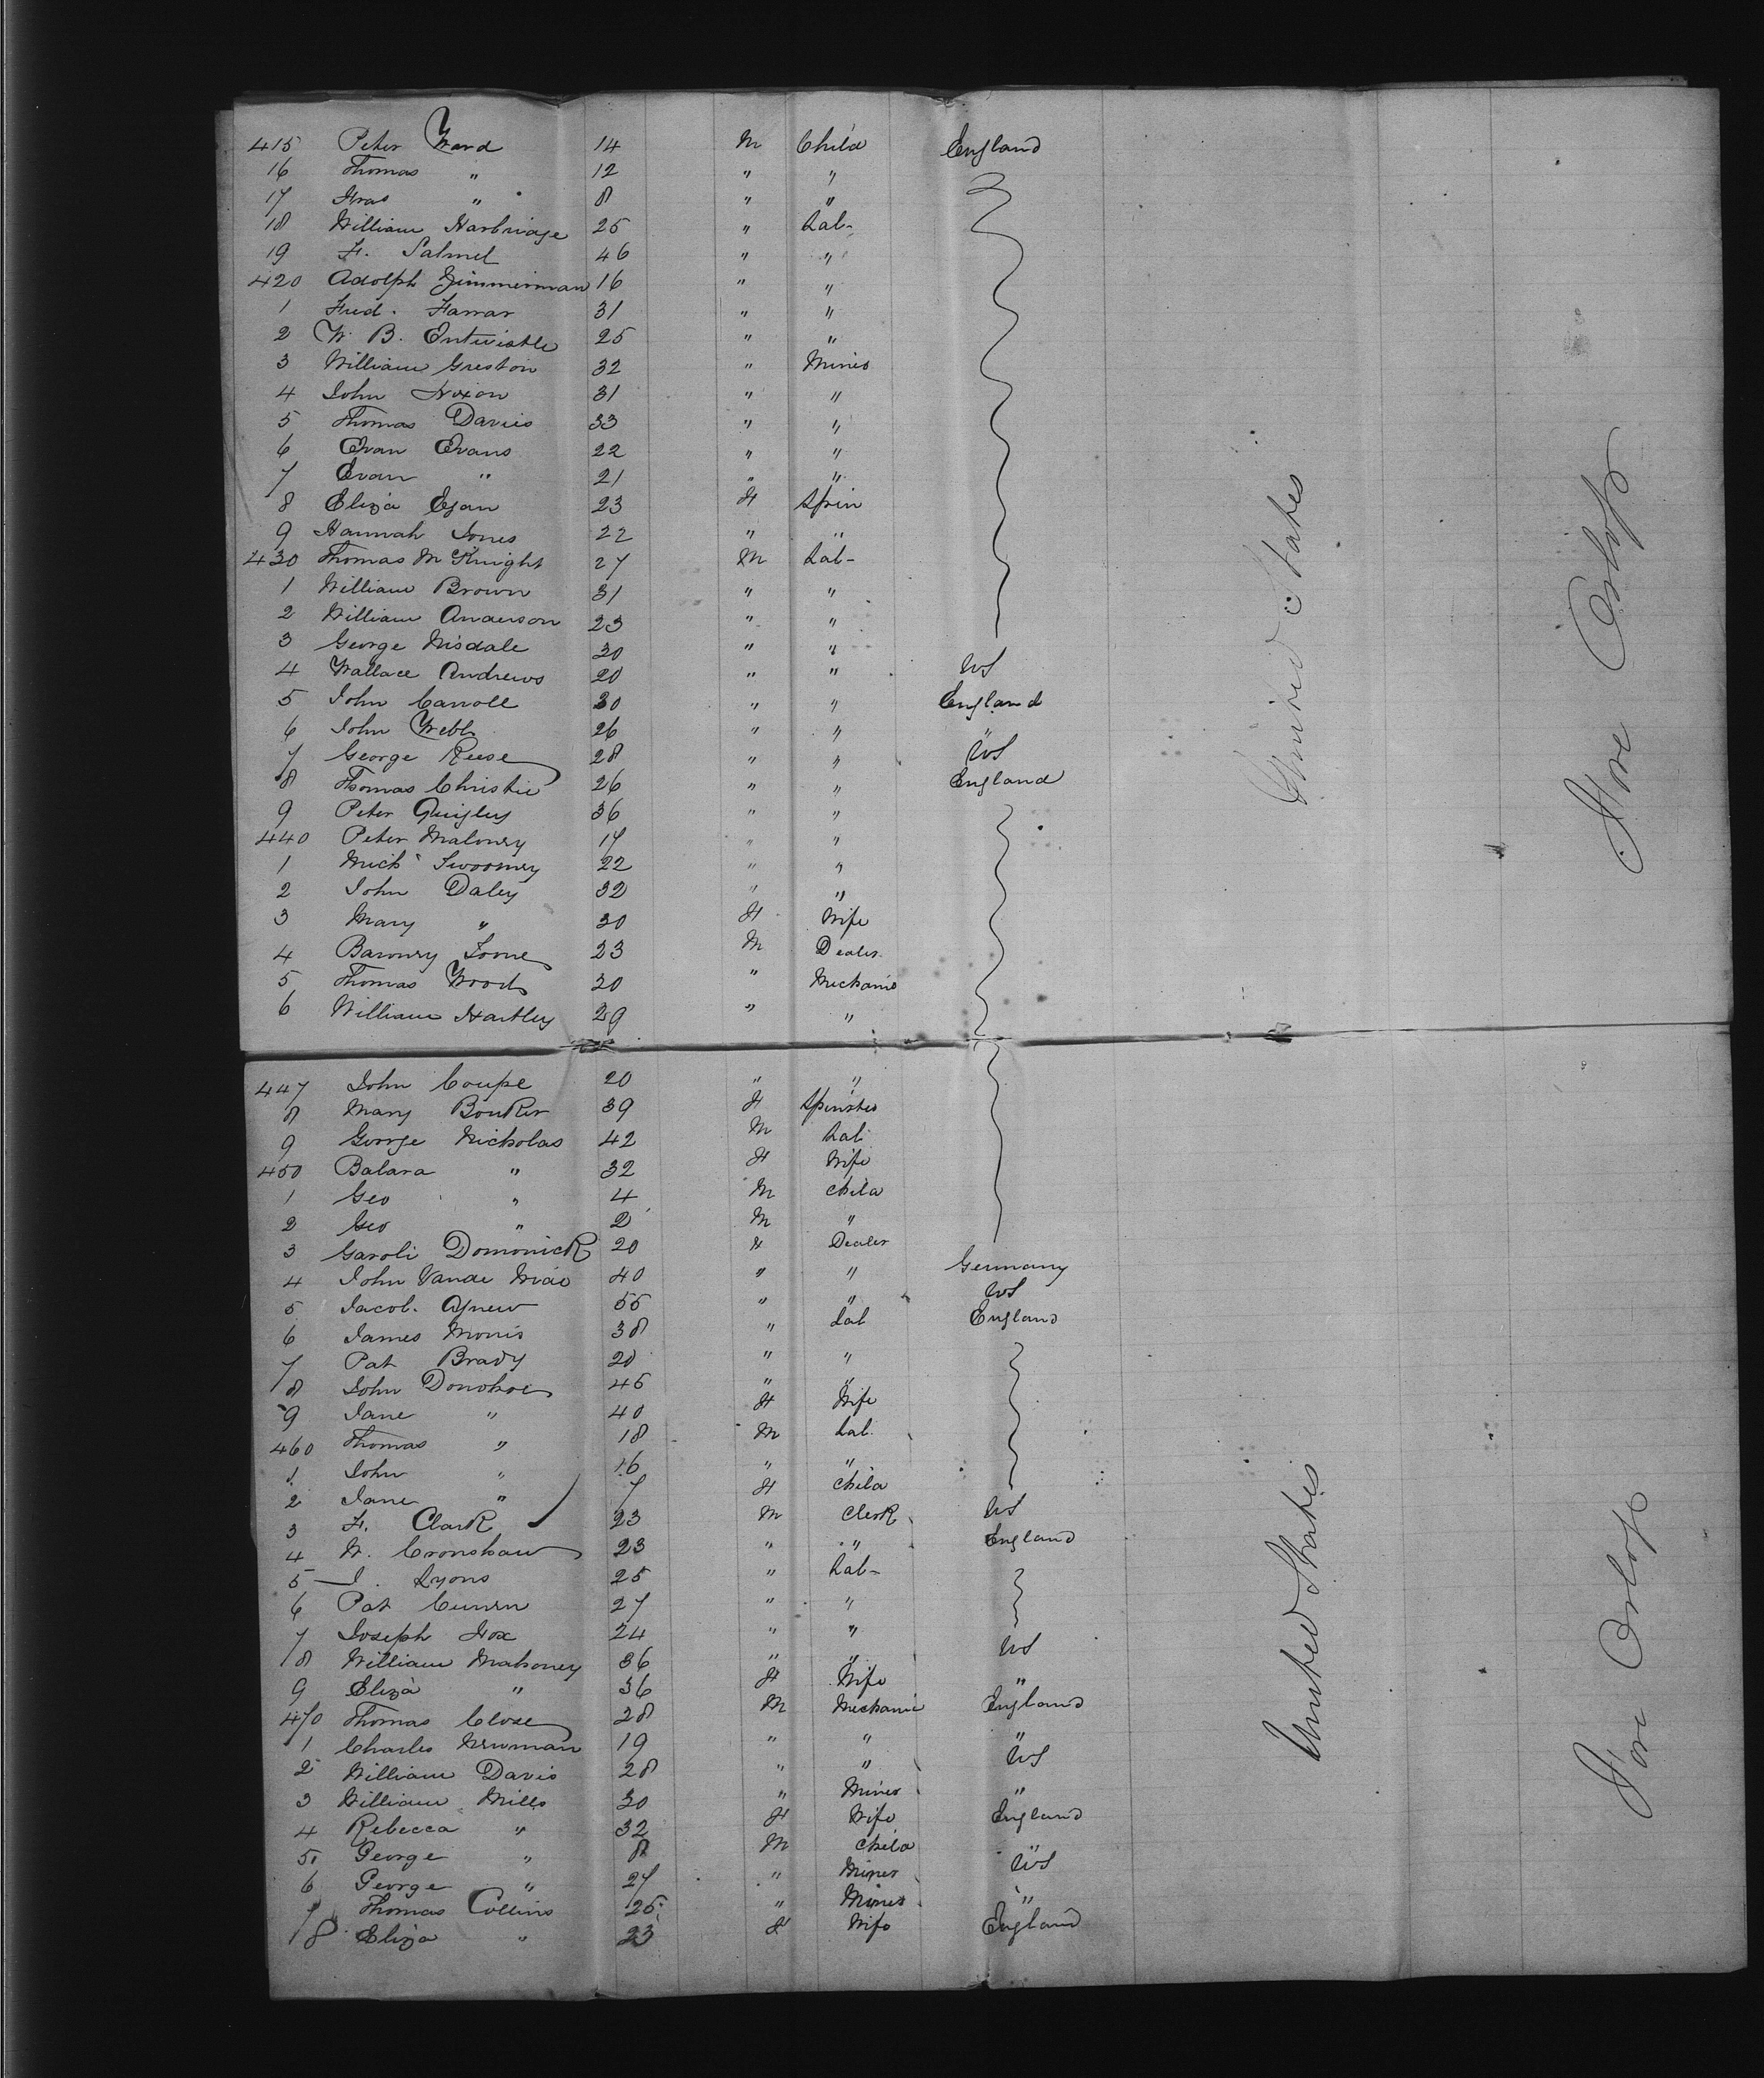 415 Peter Ward 14 M Child England
16 Thomas " 12 " "
17 " 8 " "
18 William Harbridge 25 " Lab-
19 F. Salmel 46 " "
420 Adolph Zimmerman 16 " "
1 Fred. Farrar 31 " "
2 W. B. Entwistle 25 " "
3 William Greston 32 " Miner
4 John Nixon 31 " "
5 Thomas Davies 33 " "
6 Evan Evans 22 " "
7 Evan " 21 " "
8 Eliza Egan 23 F Spin
9 Hannah Jones 22 " "
430 Thomas McKnight 27 M Lab-
1 William Brown 31 " "
2 William Anderson 23 " "
3 George Nisdale 30 " "
4 Wallace Andrews 20 " " US
5 John Carroll 30 " " England
6 John Webb 26 " " "
7 George Reese 28 " " US
8 Thomas Christie 26 " " England
9 Peter Quigley 36 " "
440 Peter Maloney 17 " "
1 Mich Swoomey 22 " "
2 John Daley 32 " "
3 Mary " 30 F Wife
4 Barnney Toone 23 M Dealer
5 Thomas Woods 20 " Mechanic
6 William Hartley 29 " "
United States
Fore Orlop
447 John Coupe 20 " "
8 Mary Bouker 39 F Spinster
9 George Nicholas 42 M Lab
450 Balara " 32 F Wife
1 Geo " 4 M Child
2 Geo " 2 M "
3 Garoli Domonick 20 Dealer
4 John Vande 40 " " Germany
5 Jacob. Agnew 55 " " US
6 James Morris 38 " Lab England
7 Pat Brady 20 " "
8 John Donohoe 45 " "
9 Jane " 40 F Wife
460 Thomas " 18 M Lab.
1 John " 16 " "
2 Jane " 7 F Child
3 F. Clark 23 M Clerk US
4 W. Cronshaw 23 " " England
5 J. Lyons 25 " Lab-
6 Pat Cunen 27 " "
7 Joseph Fox 24 " "
8 William Mahoney 36 " " US
9 Eliza " 36 F Wife "
470 Thomas Close 28 M Mechanic England
1 Charles Newman 19 " " "
2 William Davis 28 " " US
3 William Mills 30 " Miner "
4 Rebecca " 32 F Wife England
5 George " 8 M Child "
6 George " 27 " Miner US
7 Thomas Collins 25 " Miner "
8 Eliza " 23 F Wife England
United States
Fore Orlop